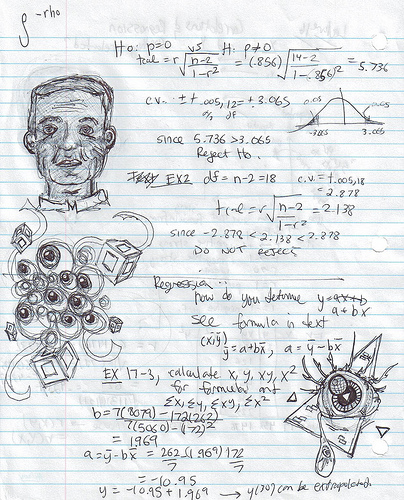 ρ -rho
Ho: p=0 vs H: p≠0
tcal = r √(n-2 / 1-r²) = (.856) √(14-2 / 1-.856²) = 5.736
c.v. = ± t.005,12 = ± 3.065
df
-3.065 3.065
since 5.736 > 3.065
Reject Ho.
EX2 df = n-2 = 18 c.v. = t.005,18
= 2.878
tcal = r √(n-2 / 1-r²) = 2.138
since -2.878 < 2.138 < 2.878
DO NOT REJECT
Regression:
how do you determine y = a+bx
see formula in text
(x̄,ȳ) ȳ = a+bx̄, a = ȳ - bx̄
EX 17-3, calculate x, y, xy, x²
for formula
Σx, Σy, Σxy, Σx²
b = 7(8079) - 172(262)
7(5060) - (172)²
= 1.969
a = ȳ - bx̄ = 262/7 (1.969) 172/7
= -10.95
y = -10.95 + 1.969 → y(30) can be extrapolated